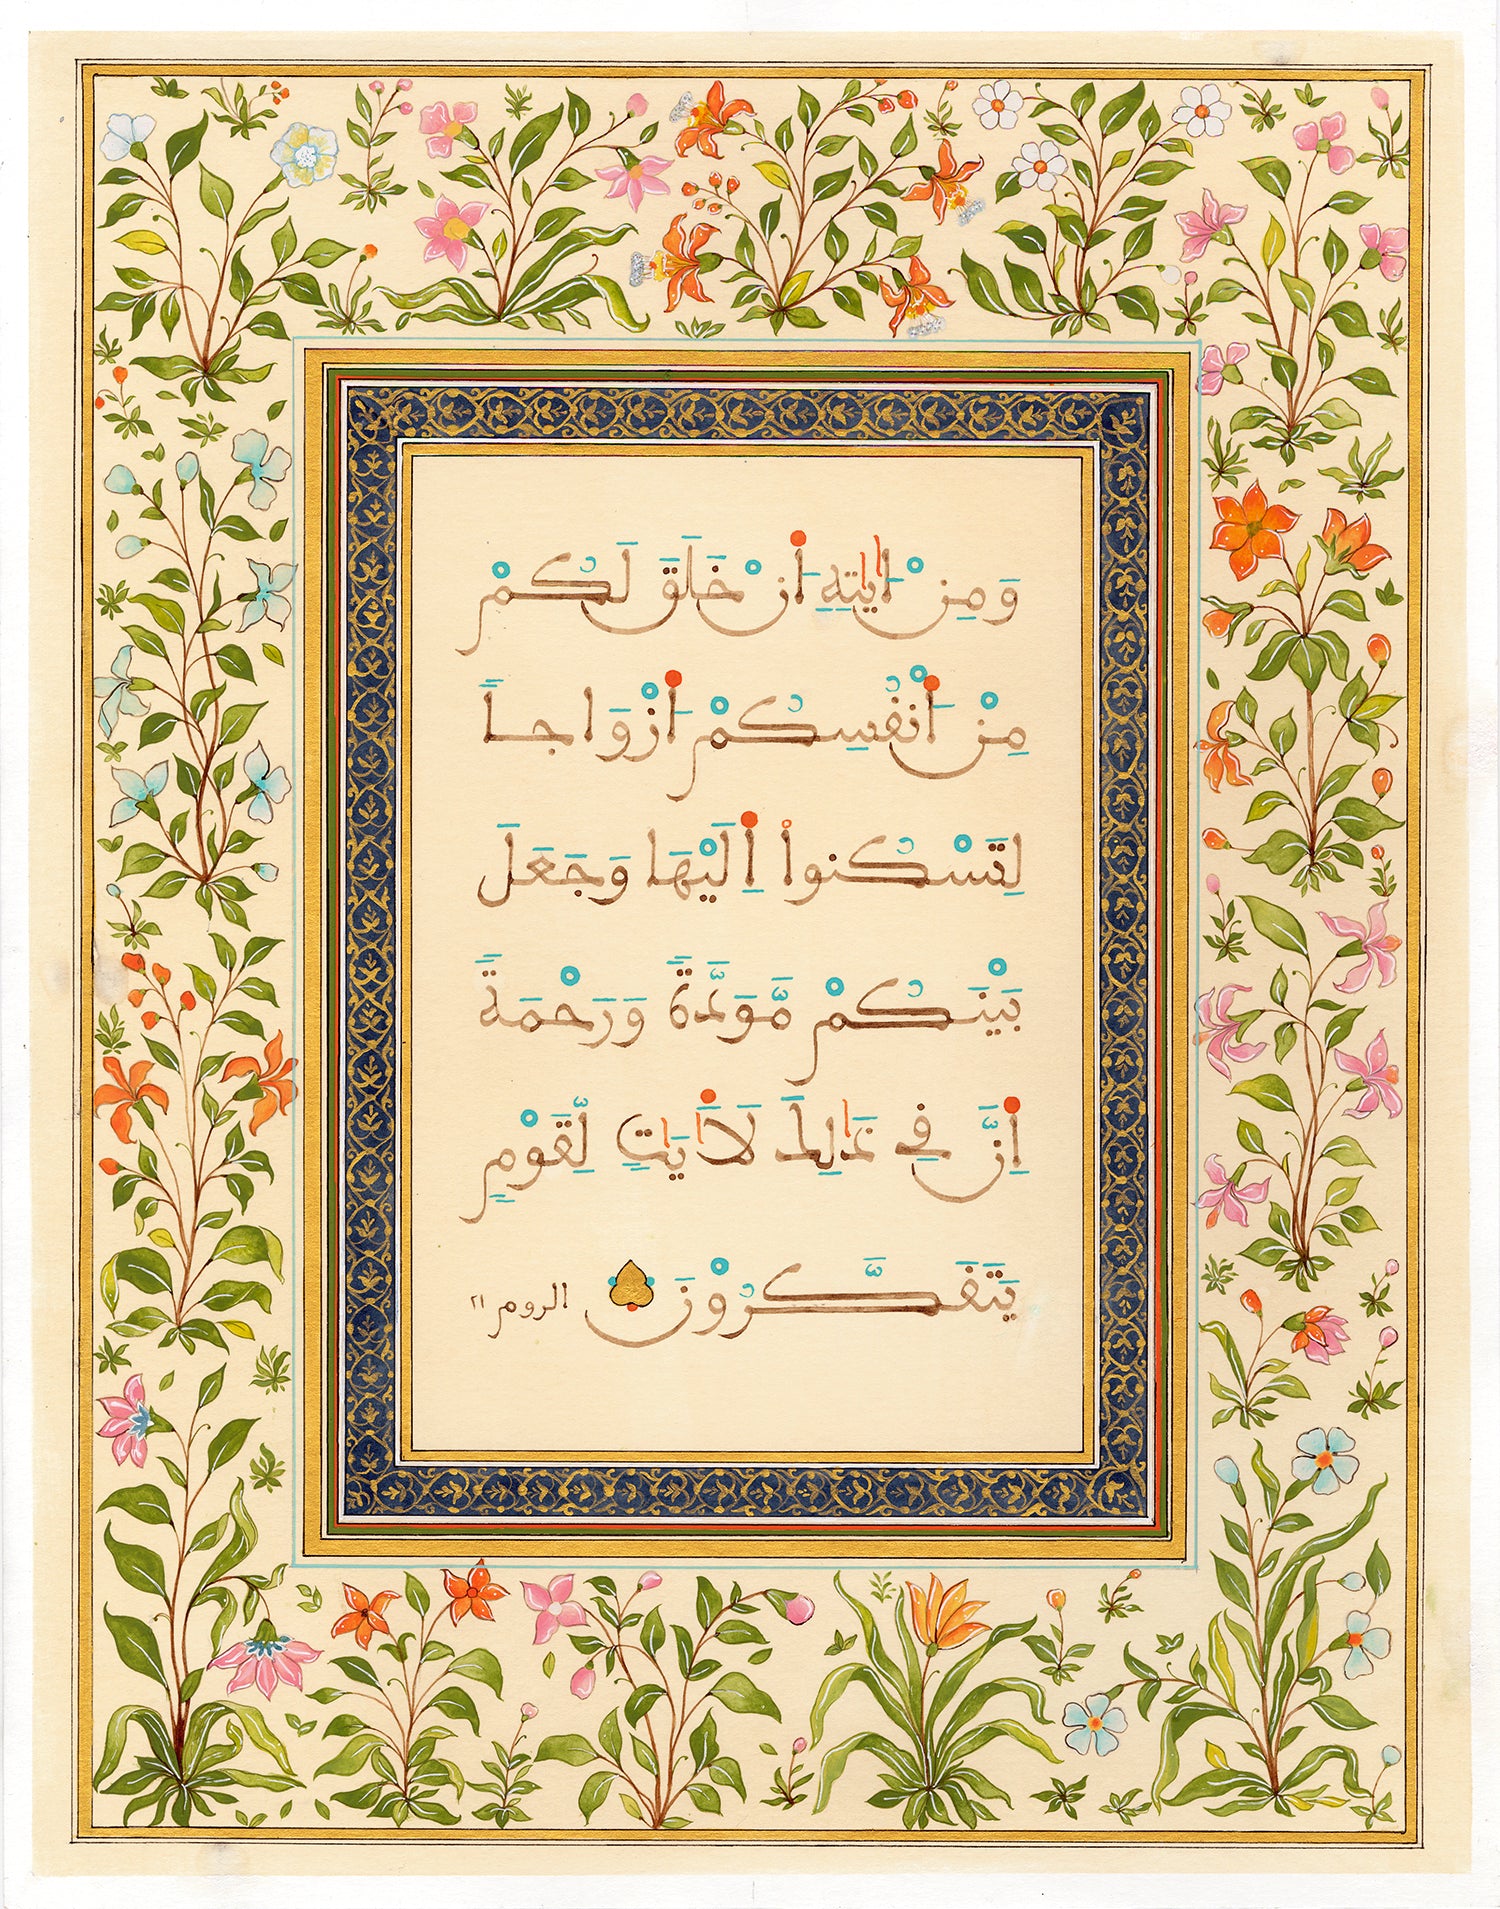 وَمِنْ اٰيٰتِهِ أَنْ خَلَقَ لَكُمْ
مِنْ أَنْفُسِكُمْ أَزْوَاجاً
لِتَسْكُنُواْ إِلَيْهَا وَجَعَلَ
بَيْنَكُمْ مَّوَدَّةً وَرَحْمَةً
إِنَّ فِي ذَٰلِكَ لَأَيَٰتٍ لِّقَوْمٍ
يَتَفَكَّرُوْنَ الروم ٢١